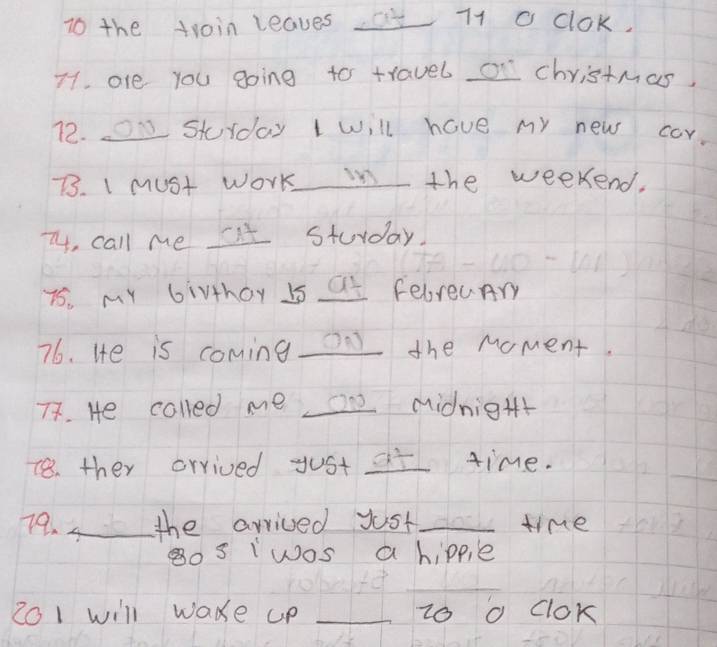 10 the train leaves at 11 o clok.
11. are you going to travel on christmas.
12. ON Sturday I will have my new car.
13. I must work in the weekend.
14. call me at Sturday.
15. my birthay is at februAry
16. He is coming ON the moment.
17. He called me on midnight
18. they arrived just at time.
19. ____ the arrived just ____ time
80s i was a hippie
20 I will wake up ____ 10 o clok